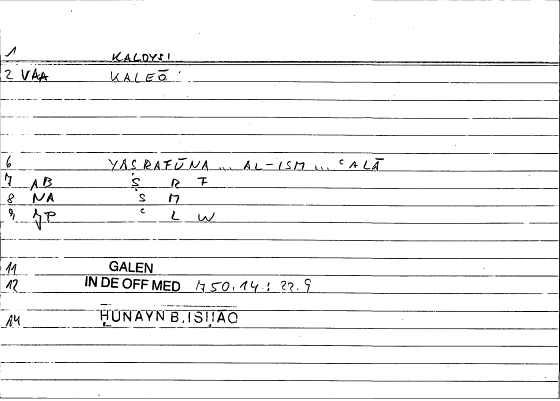 1 KALOYSI
2 VAA KALEŌ
6 YAṢRAFŪNA ... AL-ISM ... ʿALĀ
7 AB Ṣ R F
8 NA S M
9 JP ʿ L W
11 GALEN
12 IN DE OFF MED 50.14 : 22.9
14 ḤUNAYN B. ISḤĀQ